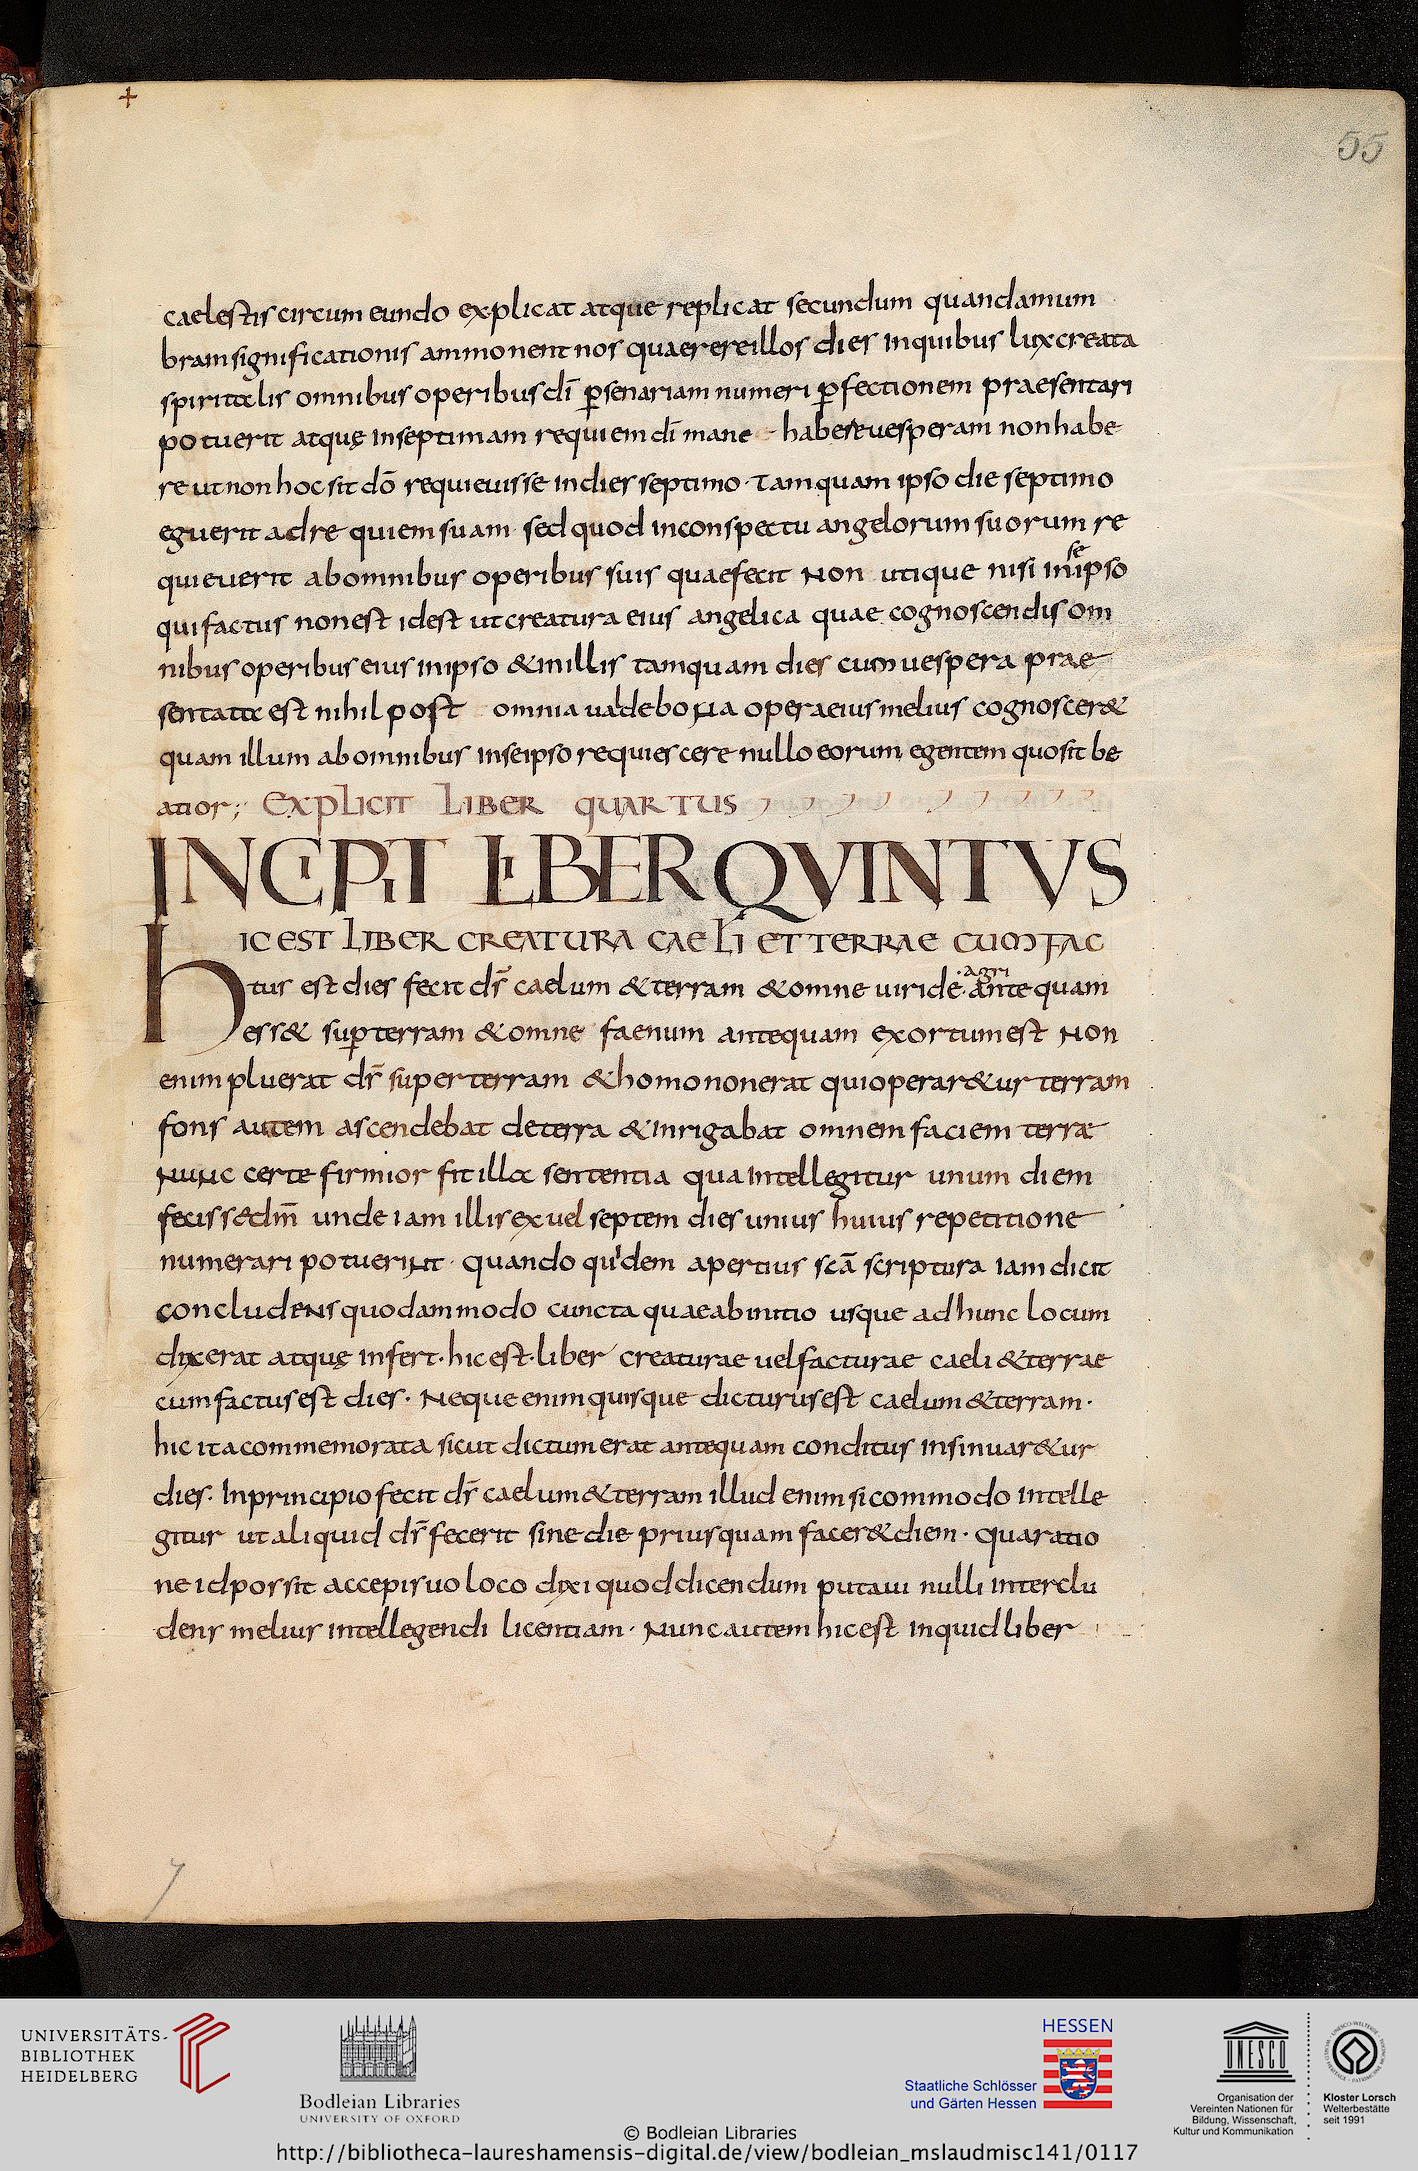 +
55
caelestis circum eundo explicat atque replicat secundum quandam um
bram significationis ammonent nos quaerere illos dies in quibus lux creata
spiritalis omnibus operibus dī ꝑ senariam numeri ꝑfectionem praesentari
potuerit atquę in septimam requiem dī mane habere uesperam non habe
re ut non hoc sit dō requieuisse in dies septimo · Tamquam ipso die septimo
eguerit ad re quiem suam · sed quod in conspectu angelorum suorum re
quieuerit ab omnibus operibus suis quae fecit Non utique nisi in se ipso
qui factus non est idest ut creatura eius angelica quae cognoscendis om
nibus operibus eius in ipso & in illis tamquam dies cum uespera prae
sentata est nihil post omnia ualde bona opera eius melius cognoscer&
quam illum ab omnibus in se ipso requiescere nullo eorum egentem quo sit be
atior; Explicit LIBER QUARTUS
INCIPIT LIBER QVINTVS
hIC EST LIBER CREATURA CAELI ET TERRAE CUM FAC
tus est dies fecit dr̄ caelum & terram & omne uiride · agri antequam
ess& suꝑ terram & omne faenum antequam exortum est Non
enim pluerat dr̄ super terram & homo non erat qui operar&ur terram
fons autem ascendebat de terra & inrigabat omnem faciem terræ
Nunc certe firmior fit illa sententia qua intellegitur unum diem
feciss& dm̄ unde iam illis ex uel septem dies unius huius repetitione
numerari potuerint · quando quidem apertius scā scriptura iam dicit
concludens quodammodo cuncta quae ab initio usque ad hunc locum
dixerat atquę infert · hic est · liber creaturae uel facturae caeli & terrae
cum factus est dies · Neque enim quisque dicturus est caelum & terram ·
hic ita commemorata sicut dictum erat antequam conditus insinuar&ur
dies · In principio fecit dr̄ caelum & terram illud enim si commodo intelle
gitur ut aliquid dr̄ fecerit sine die prius quam facer& diem · qua ratio
ne id possit accepi suo loco dixi quod dicendum putaui nulli interclu
dens melius intellegendi licentiam · Nunc autem hic est inquid liber
UNIVERSITÄTS-
BIBLIOTHEK
HEIDELBERG
Bodleian Libraries
UNIVERSITY OF OXFORD
HESSEN
Staatliche Schlösser
und Gärten Hessen
UNESCO
Organisation der
Vereinten Nationen für
Bildung, Wissenschaft,
Kultur und Kommunikation
Kloster Lorsch
Welterbestätte
seit 1991
© Bodleian Libraries
http://bibliotheca-laureshamensis-digital.de/view/bodleian_mslaudmisc141/0117